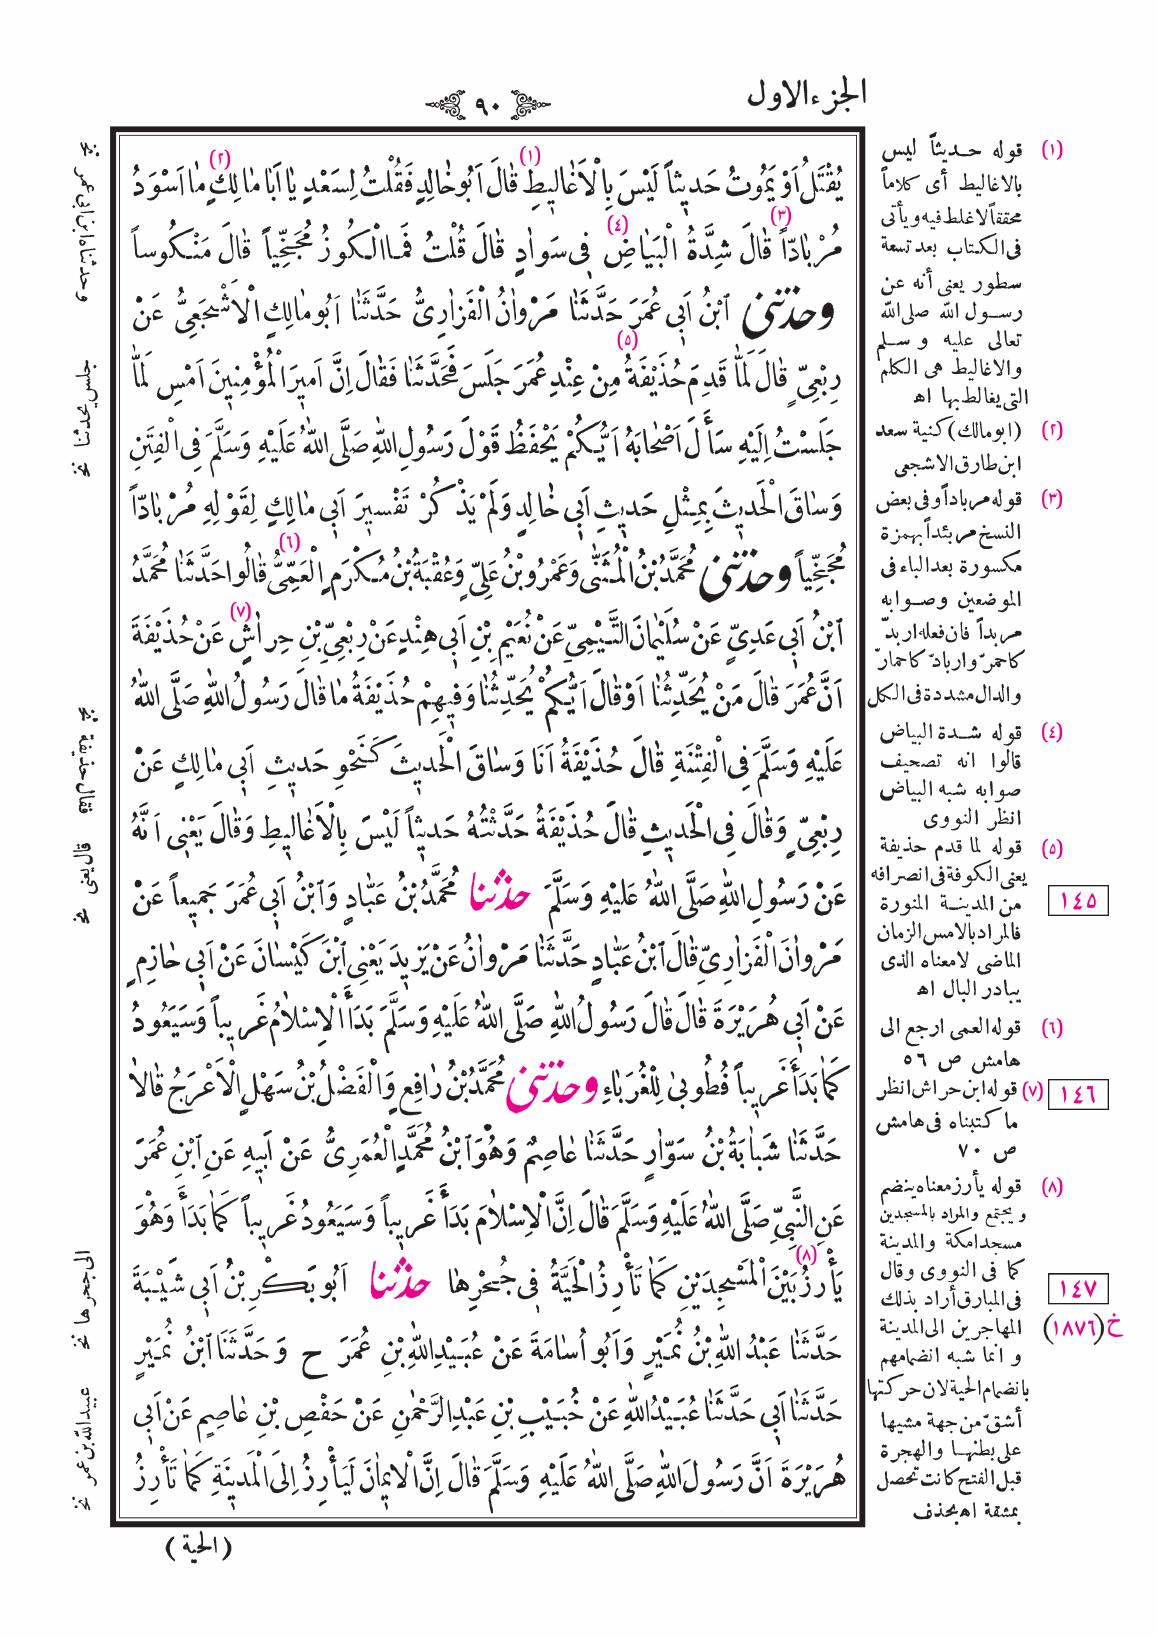 الجزء الاول
٩٠
يُقْتَلُ اَوْ يَمُوتُ حَديثاً لَيْسَ بِالْاَغَاليطِ (١) قَالَ اَبُو خَالِدٍ فَقُلْتُ لِسَعْدٍ يَا اَبَا مَالِكٍ (٢) مَا اَسْوَدُ
مُرْبَادّاً (٣) قَالَ شِدَّةُ الْبَيَاضِ (٤) فى سَوَادٍ قَالَ قُلْتُ فَمَا الْكُوزُ مُجَخِّياً قَالَ مَنْكُوساً
وحَدَّثَنى ابْنُ اَبى عُمَرَ حَدَّثَنَا مَرْوَانُ الْفَزَارِىُّ حَدَّثَنَا اَبُو مَالِكٍ الْاَشْجَعِىُّ عَنْ
رِبْعِىٍّ قَالَ لَمَّا قَدِمَ حُذَيْفَةُ (٥) مِنْ عِنْدِ عُمَرَ جَلَسَ فَحَدَّثَنَا فَقَالَ اِنَّ اَميرَ الْمُؤْمِنينَ اَمْسِ لَمَّا
جَلَسْتُ اِلَيْهِ سَأَلَ اَصْحَابَهُ اَيُّكُمْ يَحْفَظُ قَوْلَ رَسُولِ اللهِ صَلَّى اللهُ عَلَيْهِ وَسَلَّمَ فِى الْفِتَنِ
وَسَاقَ الْحَديثَ بِمِثْلِ حَديثِ اَبى خَالِدٍ وَلَمْ يَذْكُرْ تَفْسيرَ اَبى مَالِكٍ لِقَوْلِهِ مُرْبَادّاً
مُجَخِّياً وحَدَّثَنى مُحَمَّدُ بْنُ الْمُثَنّٰى وَعَمْرُو بْنُ عَلِىٍّ وَعُقْبَةُ بْنُ مُكْرَمٍ الْعَمِّىُّ (٦) قَالُوا حَدَّثَنَا مُحَمَّدُ
ابْنُ اَبى عَدِىٍّ عَنْ سُلَيْمَانَ التَّيْمِىِّ عَنْ نُعَيْمِ بْنِ اَبى هِنْدٍ عَنْ رِبْعِىِّ بْنِ حِرَاشٍ (٧) عَنْ حُذَيْفَةَ
اَنَّ عُمَرَ قَالَ مَنْ يُحَدِّثُنَا اَوْ قَالَ اَيُّكُمْ يُحَدِّثُنَا وَفيهِمْ حُذَيْفَةُ مَا قَالَ رَسُولُ اللهِ صَلَّى اللهُ
عَلَيْهِ وَسَلَّمَ فِى الْفِتْنَةِ قَالَ حُذَيْفَةُ اَنَا وَسَاقَ الْحَديثَ كَنَحْوِ حَديثِ اَبى مَالِكٍ عَنْ
رِبْعِىٍّ وَقَالَ فِى الْحَديثِ قَالَ حُذَيْفَةُ حَدَّثْتُهُ حَديثاً لَيْسَ بِالْاَغَاليطِ وَقَالَ يَعْنى اَنَّهُ
عَنْ رَسُولِ اللهِ صَلَّى اللهُ عَلَيْهِ وَسَلَّمَ حَدَّثَنَا مُحَمَّدُ بْنُ عَبَّادٍ وَابْنُ اَبى عُمَرَ جَميعاً عَنْ
مَرْوَانَ الْفَزَارِىِّ قَالَ ابْنُ عَبَّادٍ حَدَّثَنَا مَرْوَانُ عَنْ يَزيدَ يَعْنِى ابْنَ كَيْسَانَ عَنْ اَبى حَازِمٍ
عَنْ اَبى هُرَيْرَةَ قَالَ قَالَ رَسُولُ اللهِ صَلَّى اللهُ عَلَيْهِ وَسَلَّمَ بَدَأَ الْاِسْلَامُ غَريباً وَسَيَعُودُ
كَمَا بَدَأَ غَريباً فَطُوبىٰ لِلْغُرَبَاءِ وحَدَّثَنى مُحَمَّدُ بْنُ رَافِعٍ وَالْفَضْلُ بْنُ سَهْلٍ الْاَعْرَجُ قَالَا
حَدَّثَنَا شَبَابَةُ بْنُ سَوَّارٍ حَدَّثَنَا عَاصِمٌ وَهُوَ ابْنُ مُحَمَّدٍ الْعُمَرِىُّ عَنْ اَبيهِ عَنِ ابْنِ عُمَرَ
عَنِ النَّبِىِّ صَلَّى اللهُ عَلَيْهِ وَسَلَّمَ قَالَ اِنَّ الْاِسْلَامَ بَدَأَ غَريباً وَسَيَعُودُ غَريباً كَمَا بَدَأَ وَهُوَ
يَأْرِزُ (٨) بَيْنَ الْمَسْجِدَيْنِ كَمَا تَأْرِزُ الْحَيَّةُ فى جُحْرِهَا حَدَّثَنَا اَبُو بَكْرِ بْنُ اَبى شَيْبَةَ
حَدَّثَنَا عَبْدُ اللهِ بْنُ نُمَيْرٍ وَاَبُو اُسَامَةَ عَنْ عُبَيْدِ اللهِ بْنِ عُمَرَ ح وَحَدَّثَنَا ابْنُ نُمَيْرٍ
حَدَّثَنَا اَبى حَدَّثَنَا عُبَيْدُ اللهِ عَنْ خُبَيْبِ بْنِ عَبْدِ الرَّحْمٰنِ عَنْ حَفْصِ بْنِ عَاصِمٍ عَنْ اَبى
هُرَيْرَةَ اَنَّ رَسُولَ اللهِ صَلَّى اللهُ عَلَيْهِ وَسَلَّمَ قَالَ اِنَّ الْايمَانَ لَيَأْرِزُ اِلَى الْمَدينَةِ كَمَا تَأْرِزُ
(الحية)
(١) قوله حديثاً ليس
بالاغاليط أى كلاماً
محققاً لاغلط فيه ويأتى
فى الكتاب بعد تسعة
سطور يعنى أنه عن
رسول الله صلى الله
تعالى عليه وسلم
والاغاليط هى الكلم
التى يغالط بها اه
(٢) (ابو مالك) كنية سعد
ابن طارق الاشجعى
(٣) قوله مرباداً وفى بعض
النسخ مربئداً بهمزة
مكسورة بعد الباء فى
الموضعين وصوابه
مربداً فان فعله اربدّ
كاحمرّ واربادّ كاحمارّ
والدال مشددة فى الكل
(٤) قوله شدة البياض
قالوا انه تصحيف
صوابه شبه البياض
انظر النووى
(٥) قوله لما قدم حذيفة
يعنى الكوفة فى انصرافه
من المدينة المنورة
فالمراد بالامس الزمان
الماضى لا معناه الذى
يبادر البال اه
(٦) قوله العمى ارجع الى
هامش ص ٥٦
(٧) قوله ابن حراش انظر
ما كتبناه فى هامش
ص ٧٠
(٨) قوله يأرز معناه ينضم
ويجتمع والمراد بالمسجدين
مسجدا مكة والمدينة
كما فى النووى وقال
فى المبارق أراد بذلك
المهاجرين الى المدينة
وانما شبه انضمامهم
بانضمام الحية لان حركتها
أشقّ من جهة مشيها
على بطنها والهجرة
قبل الفتح كانت تحصل
بمشقة اه بحذف
١٤٥
١٤٦
١٤٧
خ (١٨٧٦)
وحدثناه ابن ابى عمر نخ
جلس يحدثنا نخ
فقال حذيفة نخ
قال يعنى نخ
الى جحرها نخ
عبيد الله بن عمر نخ